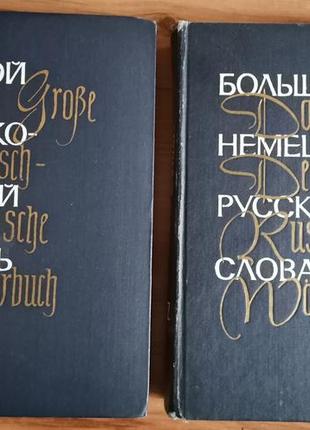 ОЙ
Große
КО-
sch-
ИЙ
sche
Ь
rbuch
БОЛЬШ
Da
НЕМЕЦ
De
РУССК
Rus
СЛОВА
Wö